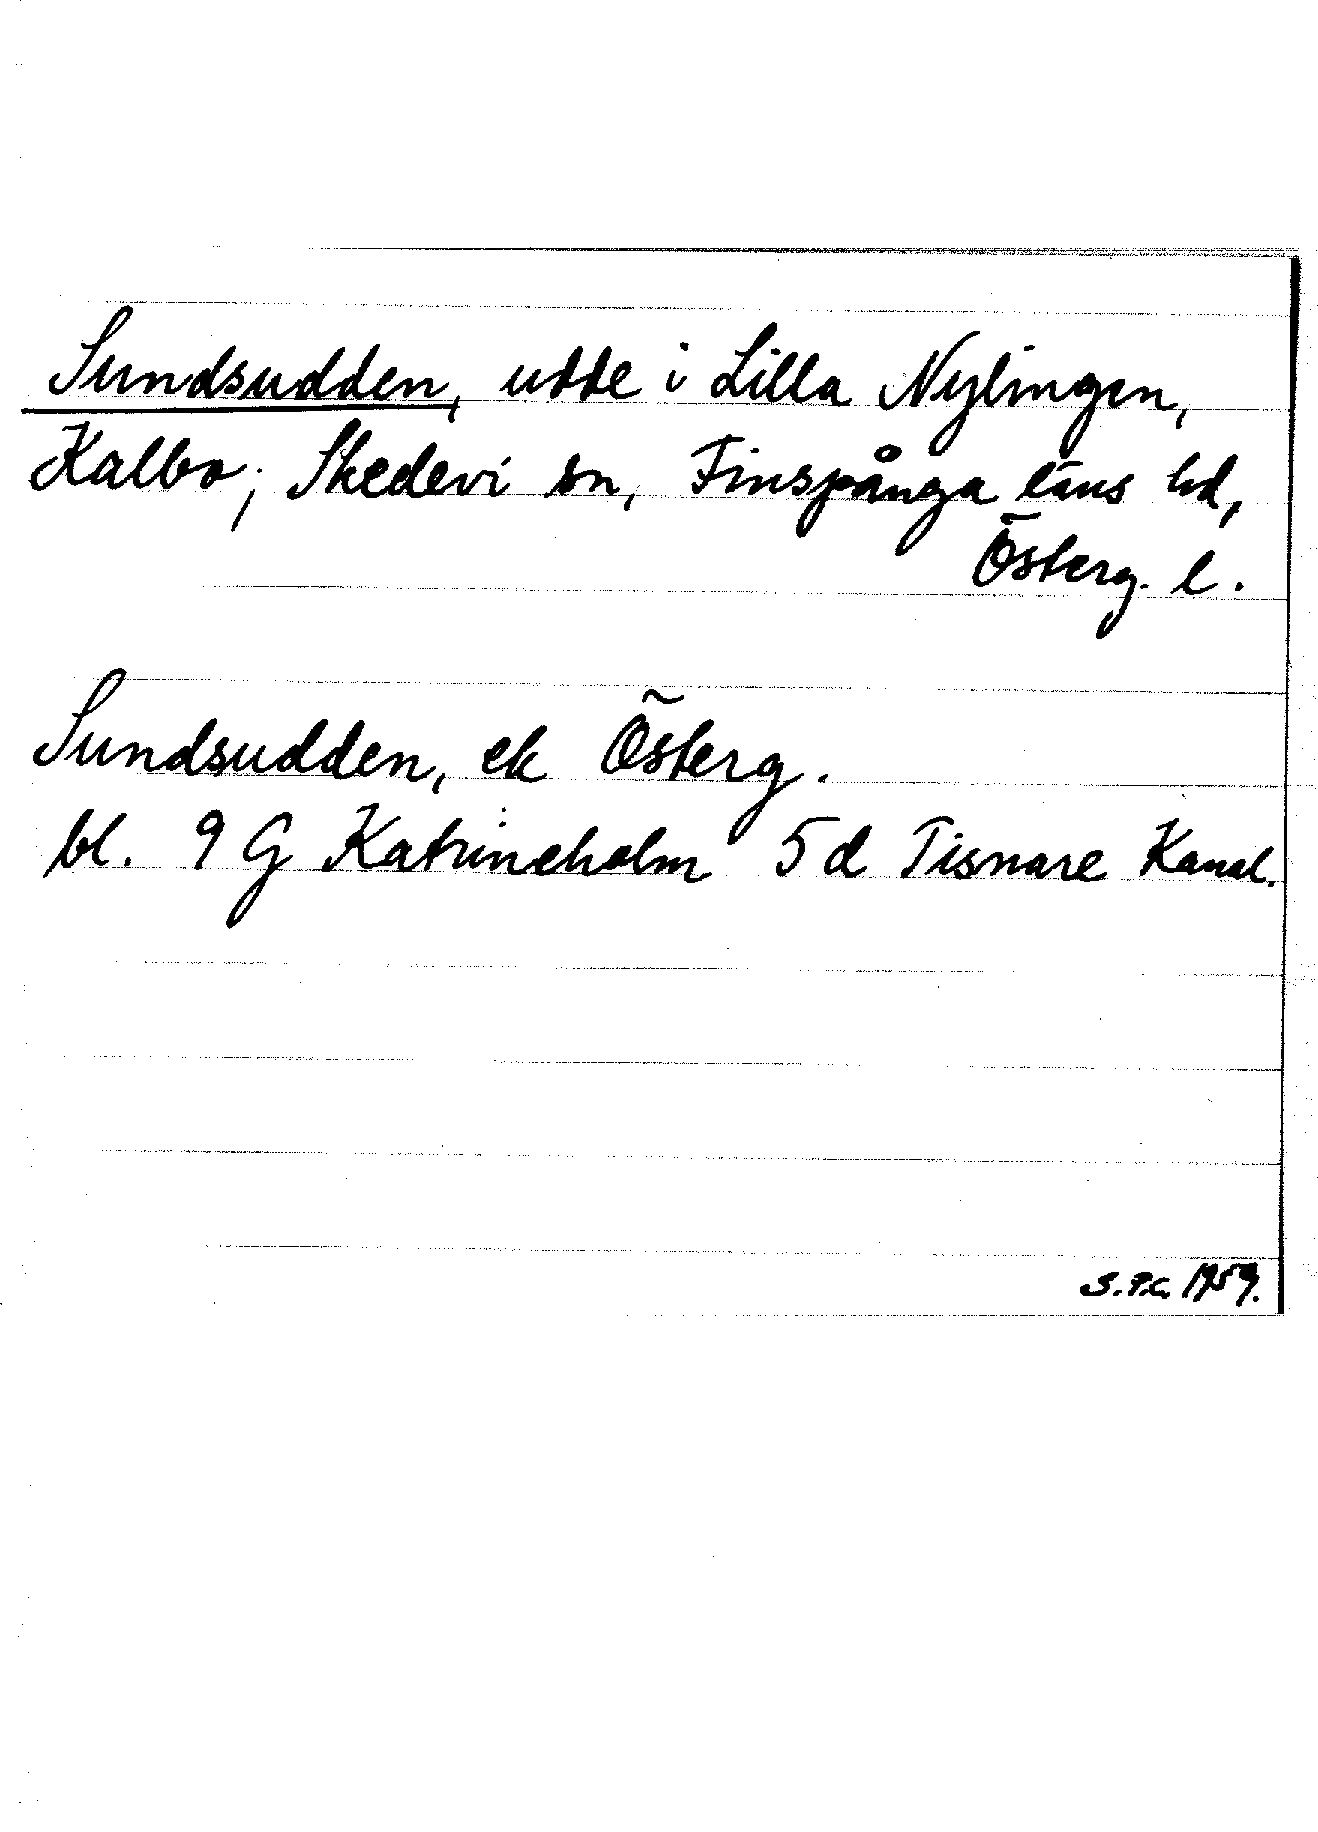 Sundsudden, udde i Lilla Nylingen,
Kalbo; Skedevi sn, Finspånga läns hd,
Österg. l.
Sundsudden, ek Österg.
bl. 9 G Katrineholm 5 d Tisnare Kanal.
S.P.C. 1959.